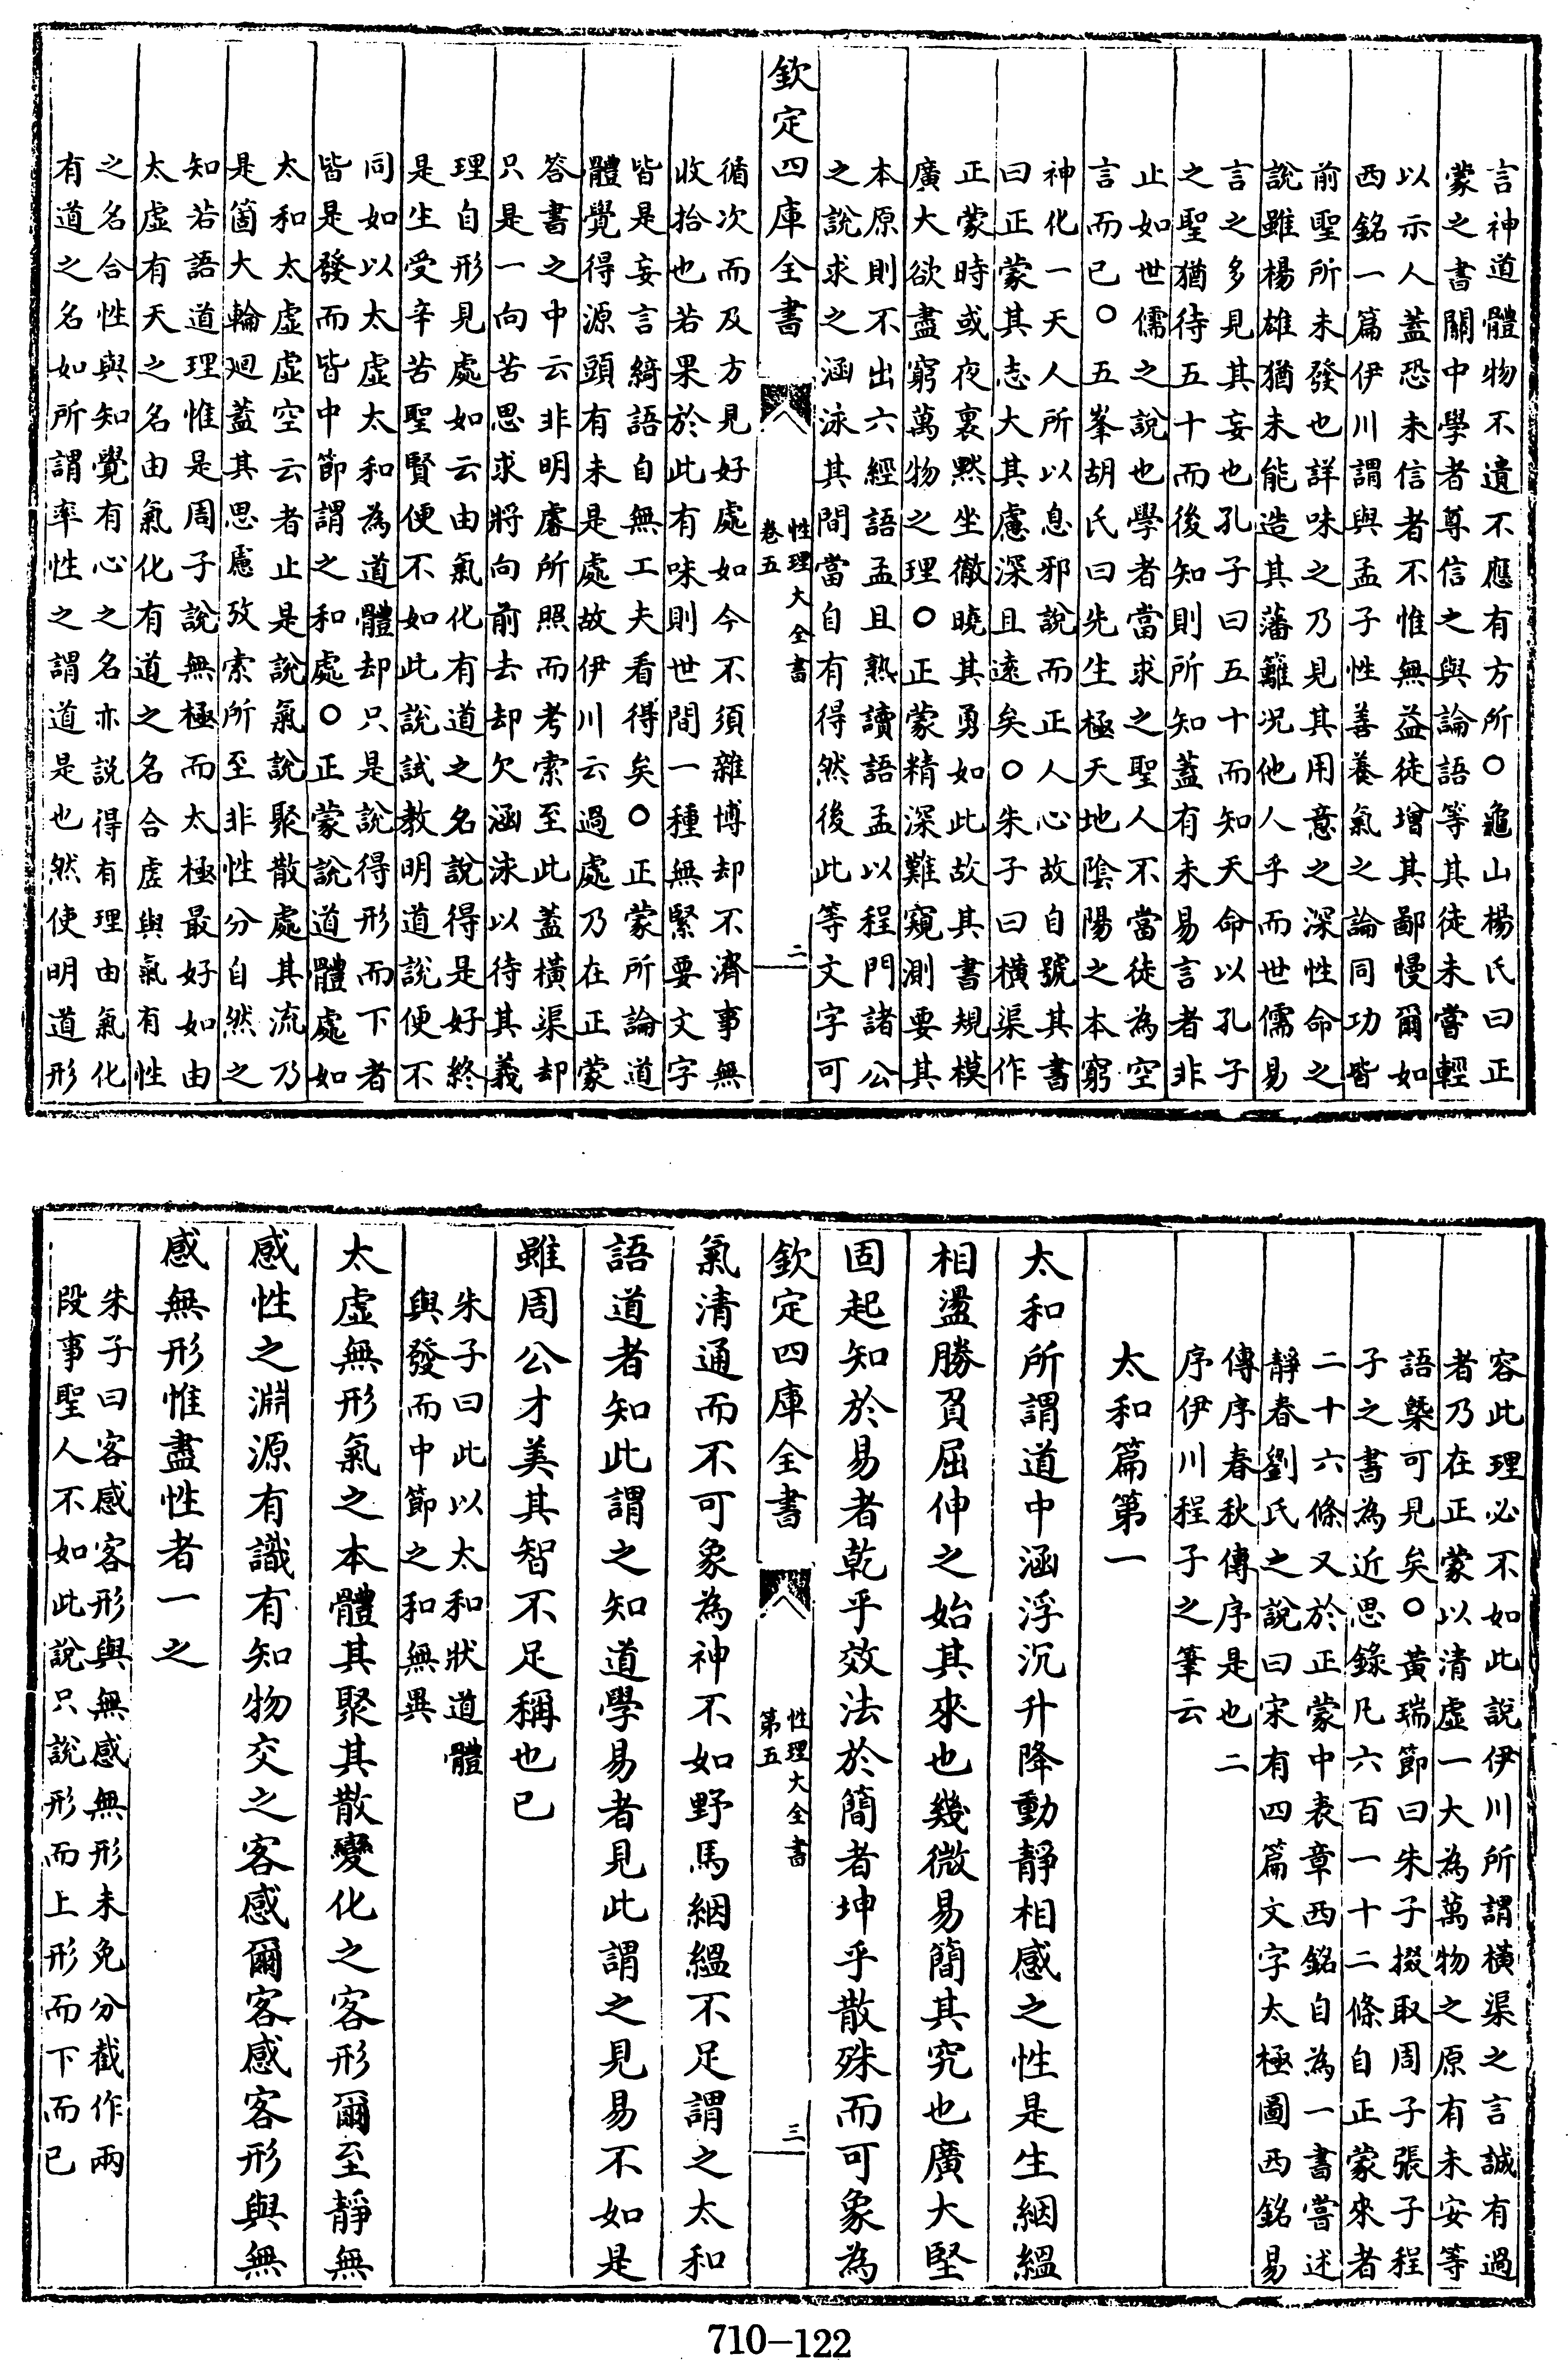 言神道體物不遺不應有方所○龜山楊氏曰正
蒙之書關中學者尊信之與論語等其徒未嘗輕
以示人蓋恐未信者不惟無益徒增其鄙慢爾如
西銘一篇伊川謂與孟子性善養氣之論同功皆
前聖所未發也詳味之乃見其用意之深性命之
說雖楊雄猶未能造其藩籬况他人乎而世儒易
言之多見其妄也孔子曰五十而知天命以孔子
之聖猶待五十而後知則所知蓋有未易言者非
止如世儒之說也學者當求之聖人不當徒為空
言而已○五峯胡氏曰先生極天地陰陽之本窮
神化一天人所以息邪說而正人心故自號其書
曰正蒙其志大其慮深且遠矣○朱子曰橫渠作
正蒙時或夜裏黙坐徹曉其勇如此故其書規模
廣大欲盡窮萬物之理○正蒙精深難窺測要其
本原則不出六經語孟且熟讀語孟以程門諸公
之說求之涵泳其間當自有得然後此等文字可
欽定四庫全書
性理大全書
卷五
二
循次而及方見好處如今不須雜博却不濟事無
收拾也若果於此有味則世間一種無緊要文字
皆是妄言綺語自無工夫看得矣○正蒙所論道
體覺得源頭有未是處故伊川云過處乃在正蒙
答書之中云非明睿所照而考索至此蓋橫渠却
只是一向苦思求將向前去却欠涵泳以待其義
理自形見處如云由氣化有道之名說得是好終
是生受辛苦聖賢便不如此說試教明道說便不
同如以太虛太和為道體却只是說得形而下者
皆是發而皆中節謂之和處○正蒙說道體處如
太和太虛虛空云者止是說氣說聚散處其流乃
是箇大輪廻蓋其思慮攷索所至非性分自然之
知若語道理惟是周子說無極而太極最好如由
太虛有天之名由氣化有道之名合虛與氣有性
之名合性與知覺有心之名亦說得有理由氣化
有道之名如所謂率性之謂道是也然使明道形
容此理必不如此說伊川所謂橫渠之言誠有過
者乃在正蒙以清虛一大為萬物之原有未安等
語槩可見矣○黃瑞節曰朱子掇取周子張子程
子之書為近思錄凡六百一十二條自正蒙來者
二十六條又於正蒙中表章西銘自為一書嘗述
靜春劉氏之說曰宋有四篇文字太極圖西銘易
傳序春秋傳序是也二
序伊川程子之筆云
太和篇第一
太和所謂道中涵浮沉升降動靜相感之性是生絪縕
相盪勝負屈伸之始其來也幾微易簡其究也廣大堅
固起知於易者乾乎效法於簡者坤乎散殊而可象為
欽定四庫全書
性理大全書
第五
三
氣清通而不可象為神不如野馬絪縕不足謂之太和
語道者知此謂之知道學易者見此謂之見易不如是
雖周公才美其智不足稱也已
朱子曰此以太和狀道體
與發而中節之和無異
太虛無形氣之本體其聚其散變化之客形爾至靜無
感性之淵源有識有知物交之客感爾客感客形與無
感無形惟盡性者一之
朱子曰客感客形與無感無形未免分截作兩
段事聖人不如此說只說形而上形而下而已
710-122